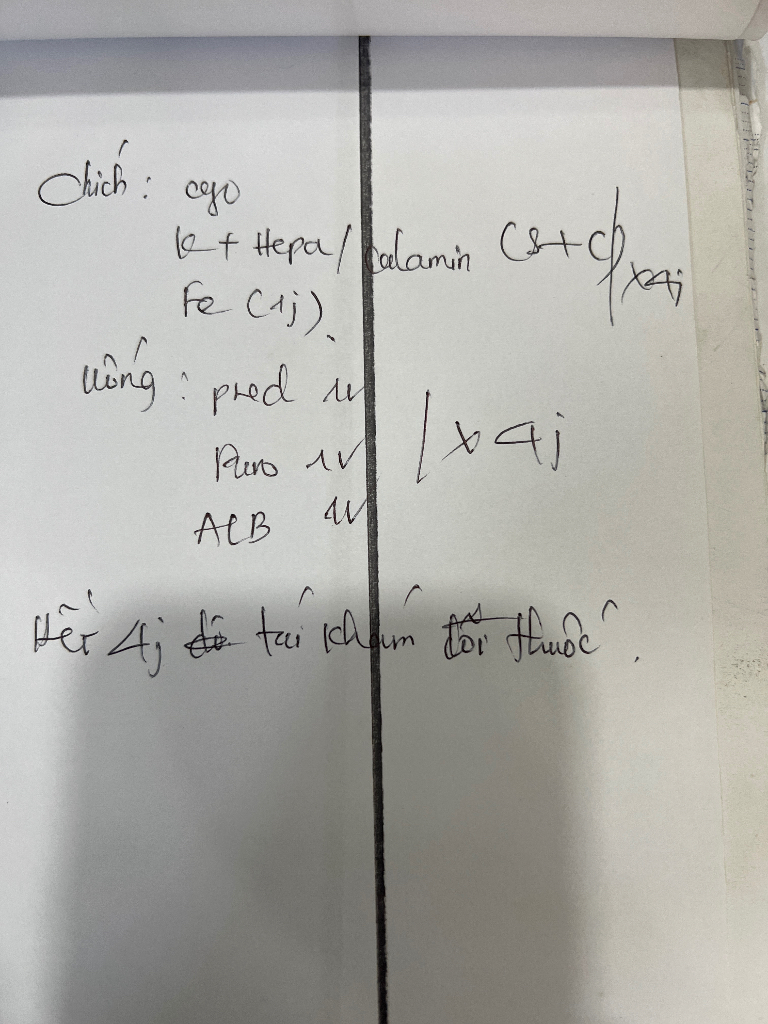 Chích: cyo
K + Hepa / Calamin (S+C) x4j
Fe (1j).
Uống: pred 1V
Puro 1V / x 4j
ALB 1V
Hết 4j tái khám đổi thuốc.